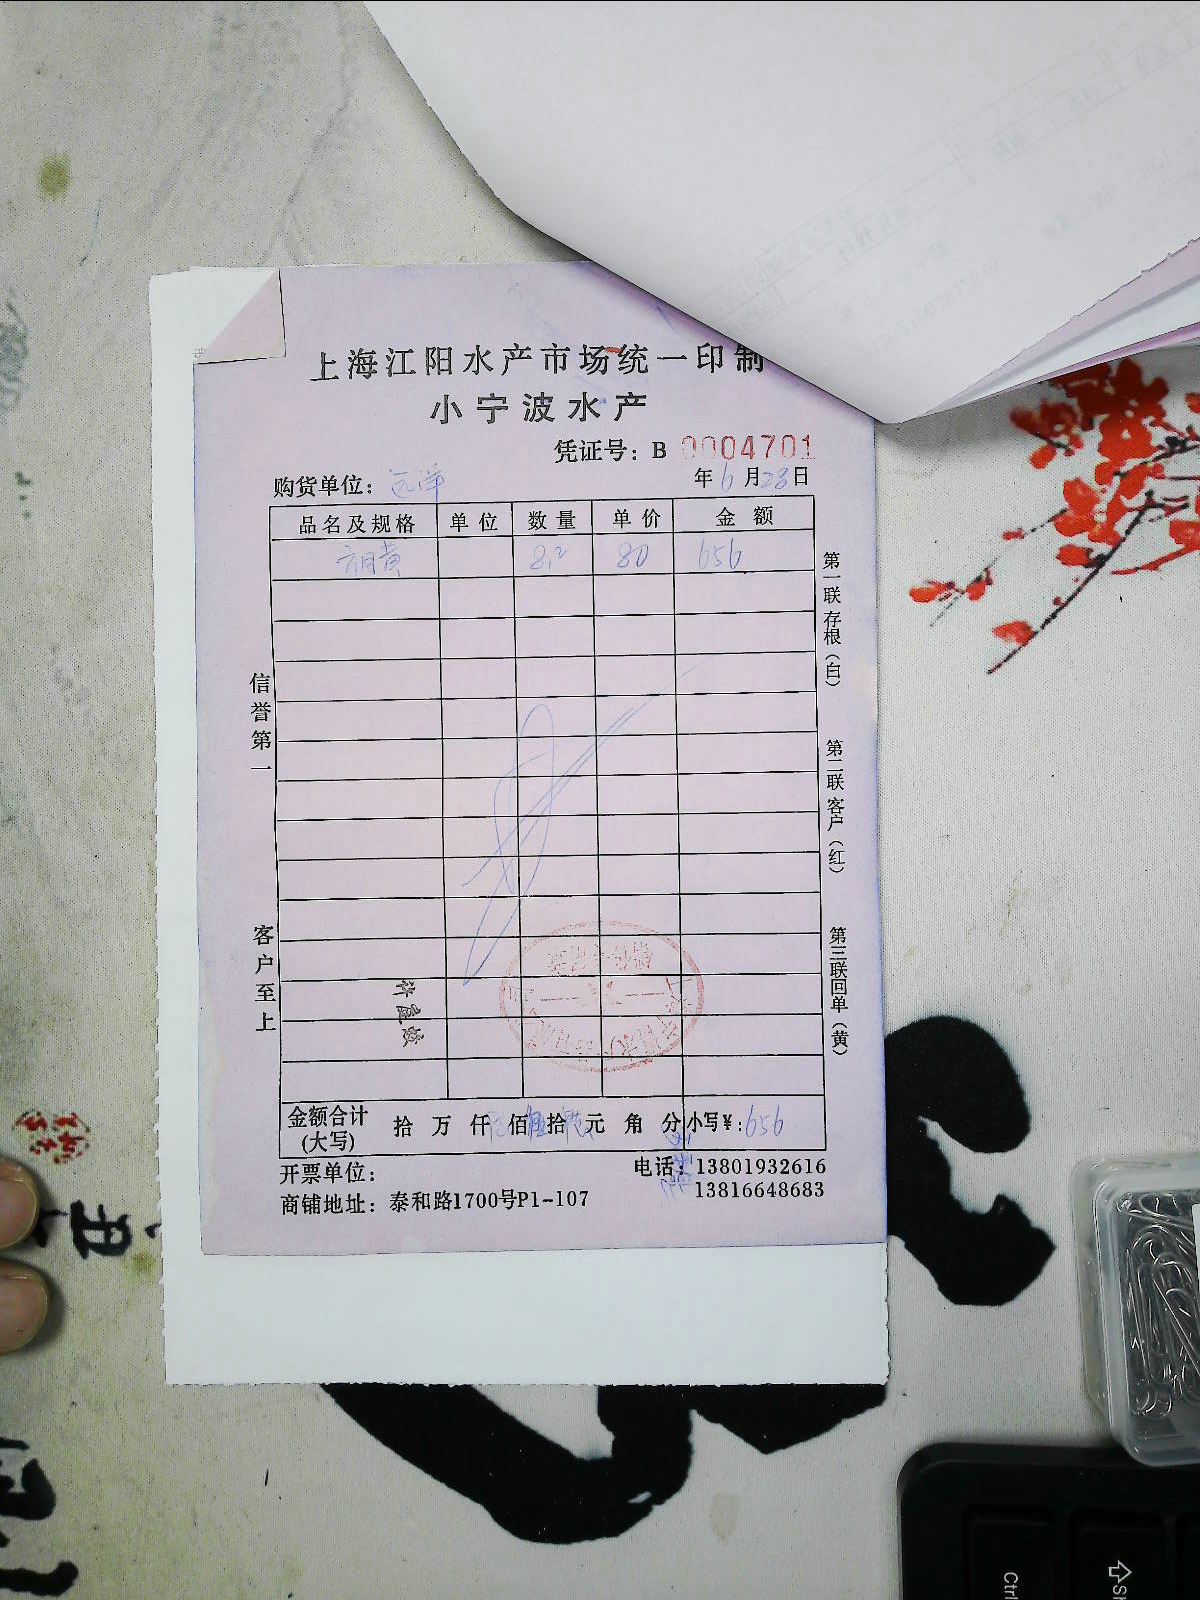 上海江阳水产市场统一印制
小宁波水产
凭证号：B 0004701
购货单位：远洋 年6月23日
品名及规格 单位 数量 单价 金额
六月黄 8.2 80 656
信誉第一
客户至上
第一联存根（白）
第二联客户（红）
第三联回单（黄）
许建敏
金额合计(大写) 拾万仟佰拾元角分 小写¥：656
开票单位： 电话：13801932616
13816648683
商铺地址：泰和路1700号P1-107
丑
Ctrl